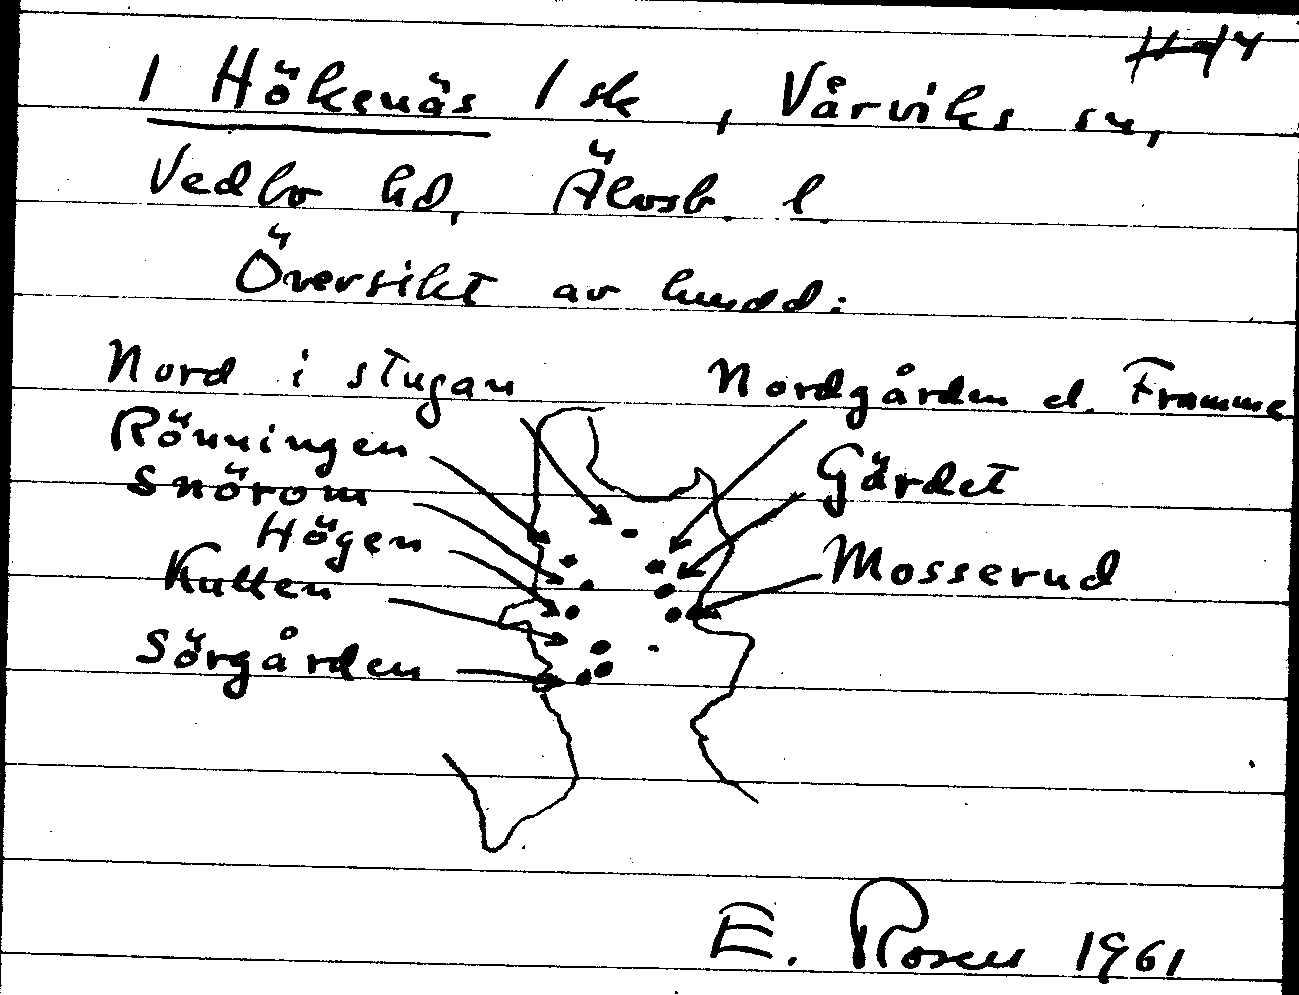 1 Hökenäs 1 sk, Vårviks sn,
Vedbo hd, Älvsb. l.
Översikt av
Nord i stugan
Nordgården el. Framme
Rönningen
Gärdet
Snörom
Högen
Mosserud
Kullen
Sörgården
E. Rosen 1961